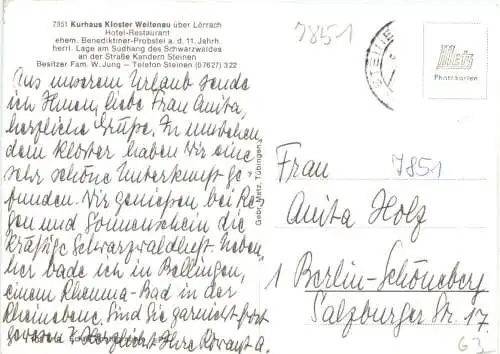 7851 Kurhaus Kloster Weitenau über Lörrach
Hotel-Restaurant
ehem. Benediktiner-Probstei a. d. 11. Jahrh.
herrl. Lage am Südhang des Schwarzwaldes
an der Straße Kandern Steinen
Besitzer Fam. W. Jung – Telefon Steinen (07627) 322
7851
Metz
Photokarten
Aus unserem Urlaub sende
ich Ihnen, liebe Frau Anita,
herzliche Grüße. In
dem Kloster haben wir eine
sehr schöne Unterkunft ge-
funden. Wir genießen bei Re-
gen und Sonnenschein die
kräftige Schwarzwaldluft. Neben-
her bade ich in Bellingen,
einem Rheuma-Bad in der
Rheinebene. Sind Sie garnicht fort
gewesen? Herzlichst Ihre
Gebr. Metz, Tübingen
Frau 7851
Anita Holz
1 Berlin-Schöneberg
Salzburger Str. 17